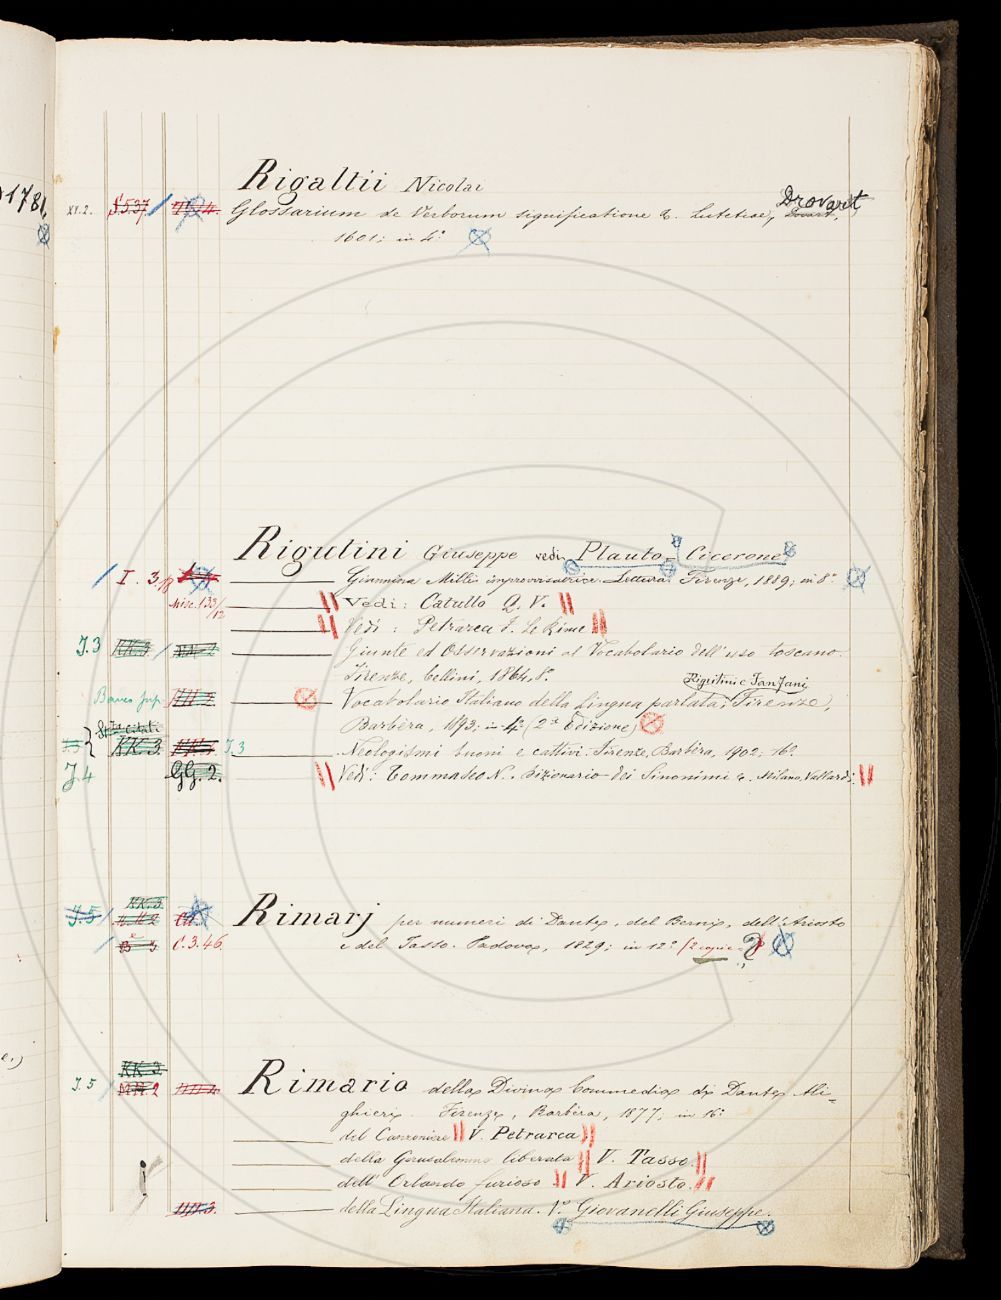 1781
Rigaltii Nicolai
XI.2. S.537 Glossarium de Verborum significatione &. Lutetiae, Drovart,
1601; in 4°
Rigutini Giuseppe vedi Plauto - Cicerone
I. 3. Giannina Milli improvvisatrice. Lettura. Firenze, 1889; in 8°
Misc. 133/12 Vedi: Catullo Q. V.
Vedi: Petrarca F. Le Rime
J.3 KK.3 Giunte ed Osservazioni al Vocabolario dell'uso toscano.
Firenze, Cellini, 1864, 8°
Rigutini e Fanfani
Vocabolario Italiano della Lingua parlata; Firenze,
Barbèra, 1893; in 4° (2ª Edizione)
KK.3. J.3 Neologismi buoni e cattivi. Firenze, Barbèra, 1902; 16°
J.4 GG.2. Vedi: Tommaseo N. Dizionario dei Sinonimi &. Milano, Vallardi
KK.3
J.5 Rimarj per numeri di Dante, del Berni, dell'Ariosto
C.3.46 e del Tasso. Padova, 1829; in 12° 2 copie ?
KK.3
J.5 MM.2 Rimario della Divina Commedia di Dante Ali=
ghieri. Firenze, Barbèra, 1877; in 16°
del Canzoniere V. Petrarca
della Gerusalemme liberata V. Tasso.
dell'Orlando furioso V. Ariosto.
della Lingua Italiana. V. Giovanelli Giuseppe.